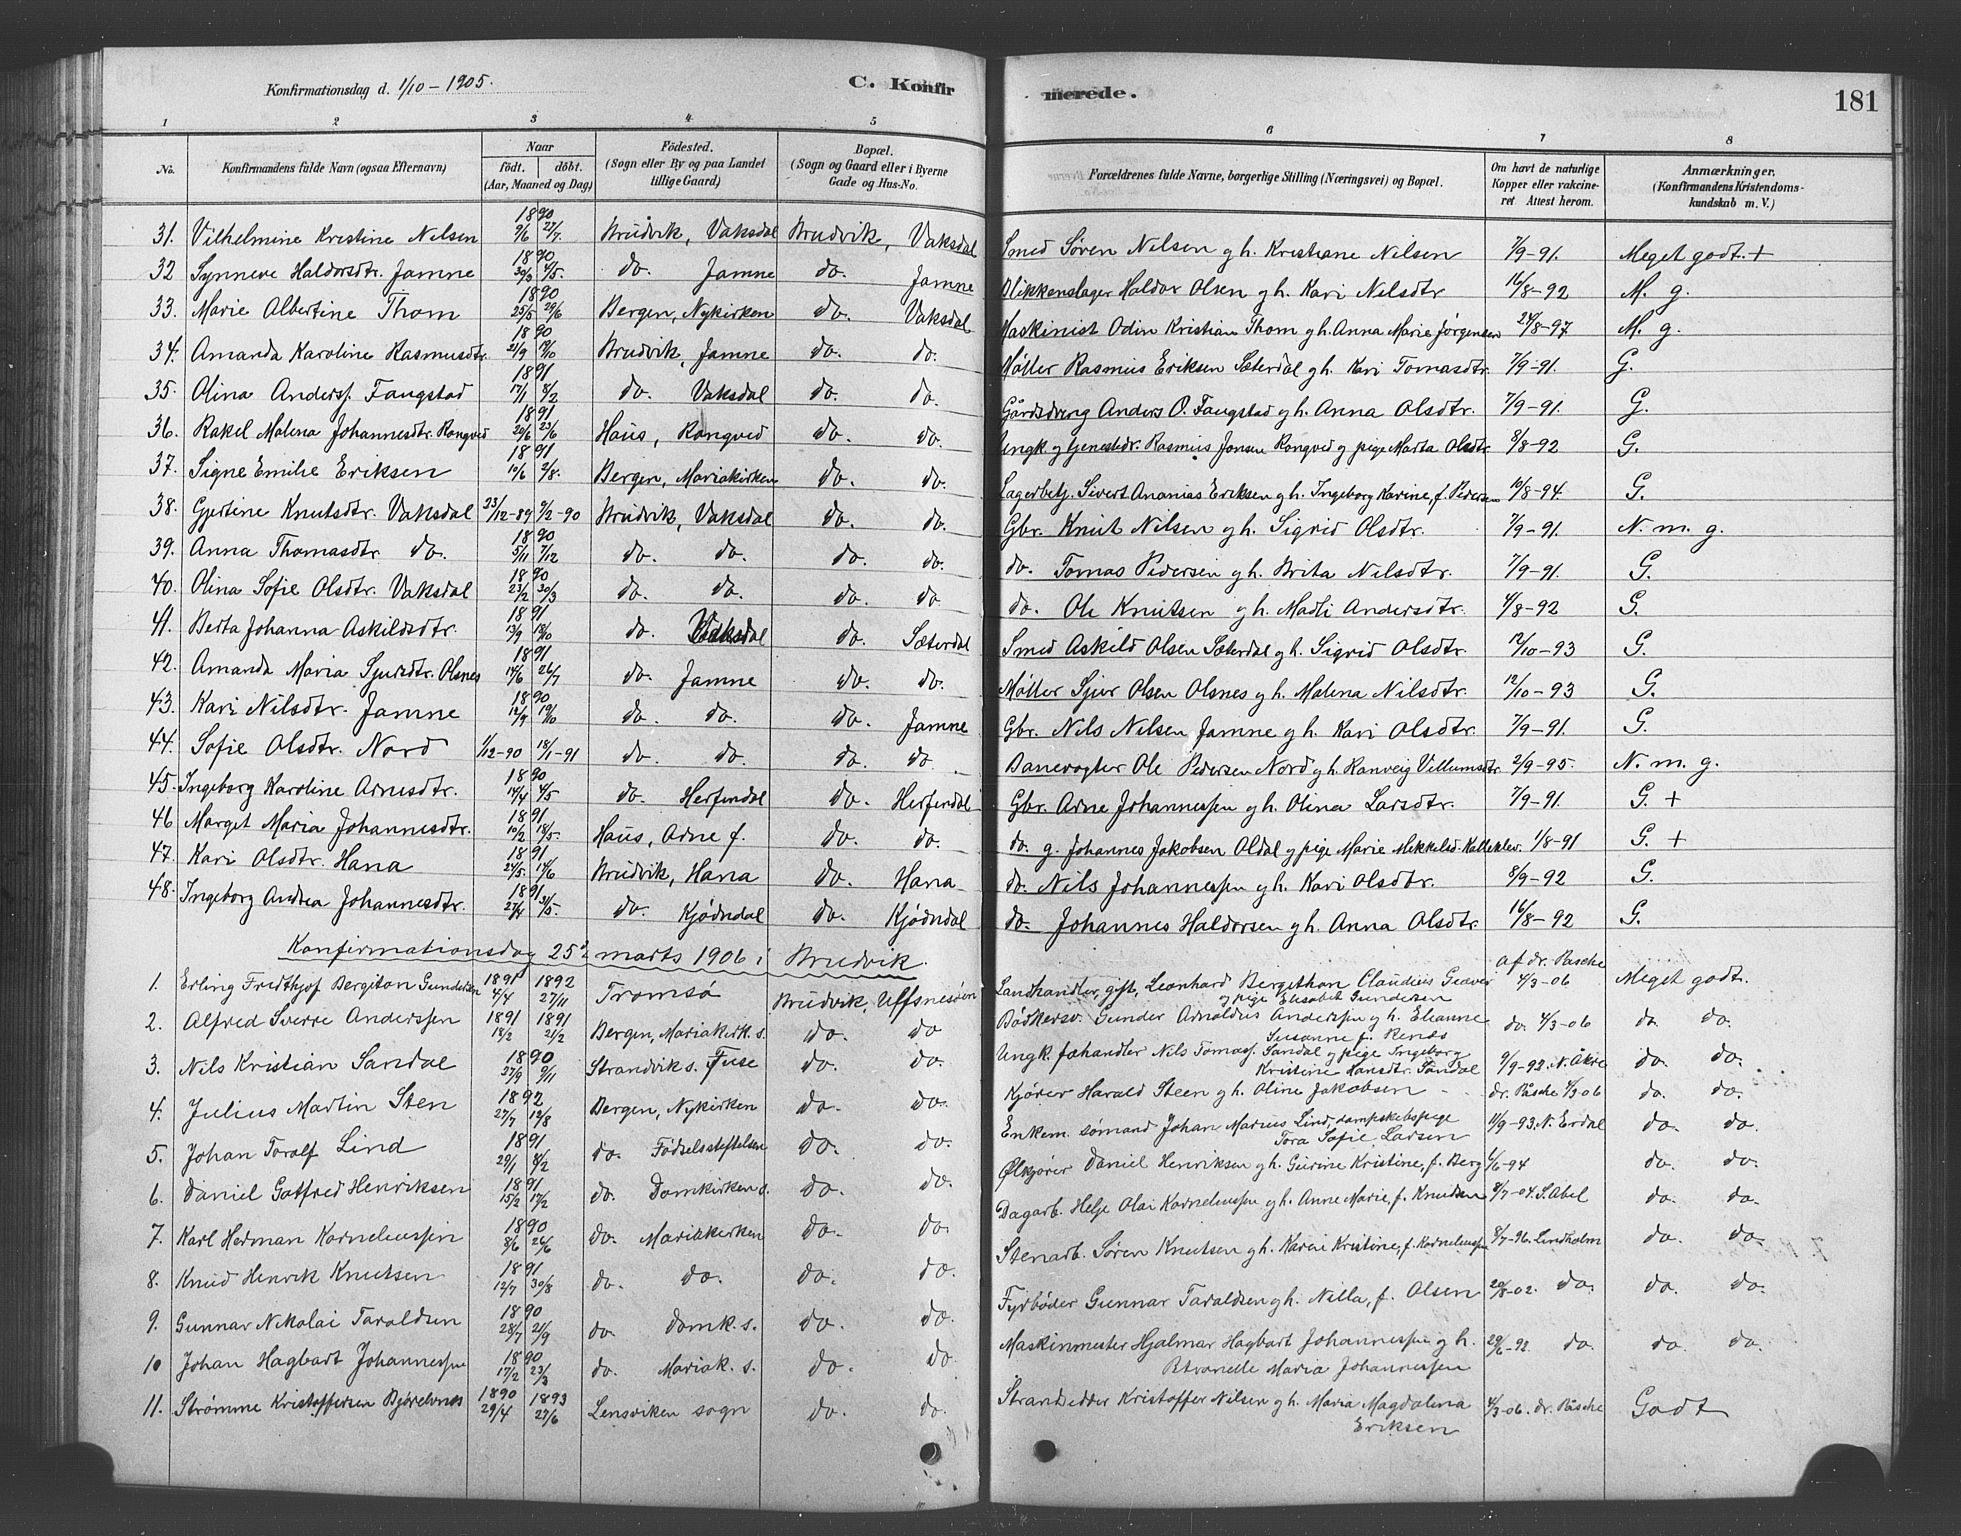 Konfirmationsdag d. 1/10 - 1905. C. Konfirmerede. 181
1 2 3 4 5 6 7 8
No. Konfirmandens fulde Navn (ogsaa Efternavn) Naar födt. döbt. (Aar, Maaned og Dag) Födested. (Sogn eller By og paa Landet tillige Gaard) Bopæl. (Sogn og Gaard eller i Byerne Gade og Hus-No. Forældrenes fulde Navne, borgerlige Stilling (Næringsvei) og Bopæl. Om havt de naturlige Kopper eller vakcineret Attest herom. Anmærkninger. (Konfirmandens Kristendomskundskab m. V.)
31. Vilhelmine Kristine Nilsen 1890 9/6 27/7 Brudvik, Vaksdal Brudvik, Vaksdal Smed Søren Nilsen g h. Kristiane Nilsen 7/9-91. Meget godt. +
32 Synneve Haldorsdtr. Jamne 1890 30/3 4/5. do. Jamne do. Jamne Blikkenslager Haldor Olsen g h. Kari Nilsdtr 16/8-92 M. g.
33. Marie Albertine Thom 1890 25/5 29/6 Bergen, Nykirken do. Vaksdal Maskinist Odin Kristian Thom g h. Anna Marie Jørgensen 24/8-97 M. g.
34. Amanda Karoline Rasmusdtr. 1890 21/9 19/10 Brudvik, Jamne do. do. Møller Rasmus Eriksen Sæterdal g h. Kari Tomasdtr. 7/9-91. G.
35. Olina Anderss. Faugstad 1891 17/1 8/2 do. Vaksdal do. do. Gårdsdreng Anders O. Faugstad g h. Anna Olsdtr. 7/9-91. G.
36. Rakel Malena Johannesdtr. Rongved 1891 20/6 23/6 Haus, Rongved do. do. Ungk. g tjenestedr. Rasmus Jonsen Rongved g pige Marta Olsdtr. 8/8-92 G.
37. Signe Emilie Eriksen 1891 10/6 2/8. Bergen, Mariakirken do. do. Lagerbetj. Sivert Ananias Eriksen g h. Ingeborg Karine, f. Pedersen 10/8-94. G.
38. Gjertine Knutsdtr. Vaksdal 23/12-89 9/2-90 Brudvik, Vaksdal do. do. Gbr. Knut Nilsen g h. Sigrid Olsdtr. 7/9-91. N. m. g.
39. Anna Thomasdtr. do. 1890 5/11 7/12 do. do. do. do. do. Tomas Pedersen g h. Brita Nilsdtr. 7/9-91. G.
40. Olina Sofie Olsdtr. Vaksdal 1890 23/2 30/3 do. do. do. do. do. Ole Knutsen g h. Madli Andersdtr. 4/8-92 G.
41. Berta Johanna Askildsdtr. 1891 13/9 18/10 do. Vaksdal do. Sæterdal Smed Askild Olsen Sæterdal g h. Sigrid Olsdtr. 12/10-93 G.
42. Amanda Maria Sjursdtr. Olsnes 1891 14/6 26/7 do. Jamne do. do. Møller Sjur Olsen Olsnes g h. Malena Nilsdtr. 12/10-93 G.
43. Kari Nilsdtr. Jamne 1890 12/9 19/10 do. do. do. Jamne Gbr. Nils Nilsen Jamne g h. Kari Olsdtr. 7/9-91. G.
44. Sofie Olsdtr. Nord 1/12-90 18/1-91 do. do. do. do. Banevogter Ole Pedersen Nord g h. Ranveig Villumsdtr. 2/9-95. N. m. g.
45. Ingeborg Karoline Arnesdtr. 1890 14/4 4/5 do. Herfindal do. Herfindal Gbr. Arne Johannessen g h. Olina Larsdtr. 7/9-91. G. +
46 Marget Maria Johannesdtr. 1891 10/2 18/5. Haus, Arne f. do. do. do. g. Johannes Jakobsen Oldal g pige Marie Mikkelsd. Kalleklev. 1/8-91 G. +
47. Kari Olsdtr. Hana 1891 24/5. 14/6 Brudvik, Hana do. Hana do. Nils Johannessen g h. Kari Olsdtr. 8/9-92 G.
48. Ingeborg Andrea Johannesdtr. 1891 27/4 31/5. do. Kjødndal do. Kjødndal do. Johannes Haldorsen g h. Anna Olsdtr. 16/8-92 G.
Konfirmationsdag 25de marts 1906 i Brudvik.
1. Erling Fridthjof Bergiton Gundersen 1891 4/4 1892 27/11 Tromsø Brudvik, Uffsnesøen Landhandler, gift, Leonhard Bergethon Claudius Græver g pige Elisabet Gundersen af dr. Påsche 4/3-06 Meget godt.
2. Alfred Sverre Anderssen 1891 18/2 1891 21/2 Bergen, Mariakirk. s. do. do Bødkersv. Gunder Arnoldus Anderssen g h. Elianne Susanne f. Renås do. 4/3-06 do. do.
3. Nils Kristian Sandal 1890 27/9 9/11 Strandvik s. Fuse do. do. Ungk. fæhandler Nils Tomass. Sandal g pige Ingeborg Kristine Hansdtr. Sandal 9/9-92. N. Åkre do. do.
4. Julius Martin Sten 1892 27/7 12/8 Bergen, Nykirken do. do. Kjører Harald Steen g h. Oline Jakobsen - dr. Påsche 4/3-06 do. do.
5. Johan Toralf Lind 1891 29/1 8/2 do. Födselsstiftelsen do. do. Enkem. sømand Johan Marius Lind, dampskibspige Tora Sofie Larsen 11/9-93. N. Erdal do. do.
6. Daniel Gotfred Henriksen 1891 15/2 17/2 do. Domkirken s. do. do. Ølkjører Daniel Henriksen g h. Gurine Kristine, f. Berg 4/6-94 do. do.
7. Karl Herman Korneliussen 1890 8/6 26/6 do. Mariakirken do. do. Dagarb. Helje Olai Korneliussen g h. Anne Marie, f. Knudsen 8/7-04. S. Abel do. do.
8. Knud Henrik Knutsen 1891 12/7 30/8 do. do. do. do. Stenarb. Sören Knutsen g h. Karen Kristine, f. Korneliussen 8/7-96. Lindholm do. do.
9. Gunnar Nikolai Taraldsen 1890 28/7 21/9 do. domk. s. do. do. Fyrbøder Gunnar Taraldsen g h. Nilla, f. Olsen 20/8-02. do. do. do.
10 Johan Hagbart Johannessen 1890 17/2 23/3 do. Mariak. s. do. do. Maskinmester Hjalmar Hagbart Johannessen g h. Maria Johannessen 29/6-92 do. do. do.
11. Strømme Kristoffersen Bjørelvnes 1890 29/4 1893 27/6 Lensviken sogn do. do. Strandsidder Kristoffer Nilsen g h. Maria Magdalena Eriksen 4/3-06. dr. Påsche Godt